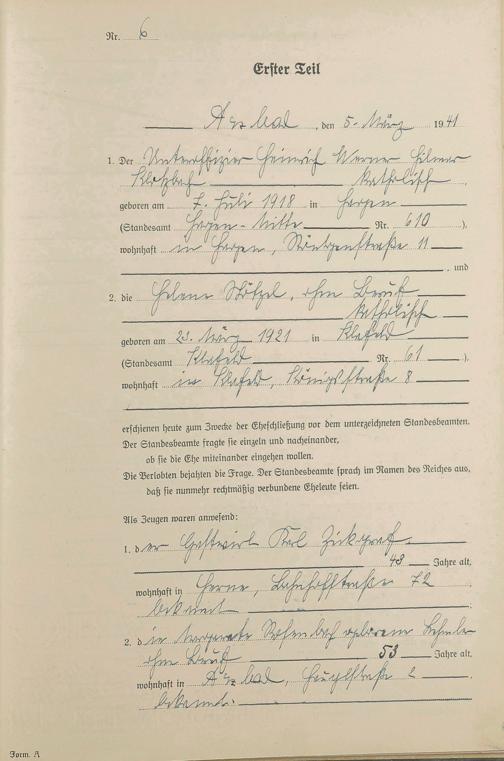 Nr. 6
Erster Teil
, den 5. März 1941
1. Der Unteroffizier Heinrich Werner
katholisch,
geboren am 7. Juli 1918 in Hagen
(Standesamt Hagen-Mitte Nr. 610 ),
wohnhaft in Hagen, 11
, und
2. die Helene ohne Beruf
katholisch
geboren am 23. März 1921 in Klafeld
(Standesamt Klafeld Nr. 61 ).
wohnhaft in Klafeld, Königsstraße 8
erschienen heute zum Zwecke der Eheschließung vor dem unterzeichneten Standesbeamten.
Der Standesbeamte fragte sie einzeln und nacheinander,
ob sie die Ehe miteinander eingehen wollen.
Die Verlobten bejahten die Frage. Der Standesbeamte sprach im Namen des Reiches aus,
daß sie nunmehr rechtmäßig verbundene Eheleute seien.
Als Zeugen waren anwesend:
1. der Gastwirt Karl
48 Jahre alt,
wohnhaft in Herne, Bahnhofstraße 72
bekannt
2. die geborene
ohne Beruf 53 Jahre alt,
wohnhaft in Hauptstraße 2
bekannt.
Form. A